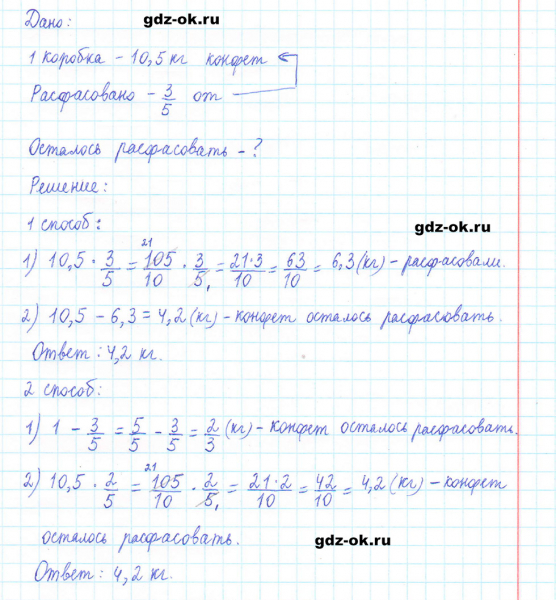 gdz-ok.ru
Дано:
1 коробка – 10,5 кг конфет
Расфасовано – 3/5 от
Осталось расфасовать – ?
Решение:
gdz-ok.ru
1 способ:
21
1) 10,5 · 3/5 = 105/10 · 3/5, = 21·3/10 = 63/10 = 6,3 (кг) – расфасовали.
2) 10,5 – 6,3 = 4,2 (кг) – конфет осталось расфасовать.
Ответ: 4,2 кг.
2 способ:
1) 1 – 3/5 = 5/5 – 3/5 = 2/3 (кг) – конфет осталось расфасовать.
21
2) 10,5 · 2/5 = 105/10 · 2/5, = 21·2/10 = 42/10 = 4,2 (кг) – конфет
осталось расфасовать.
gdz-ok.ru
Ответ: 4,2 кг.